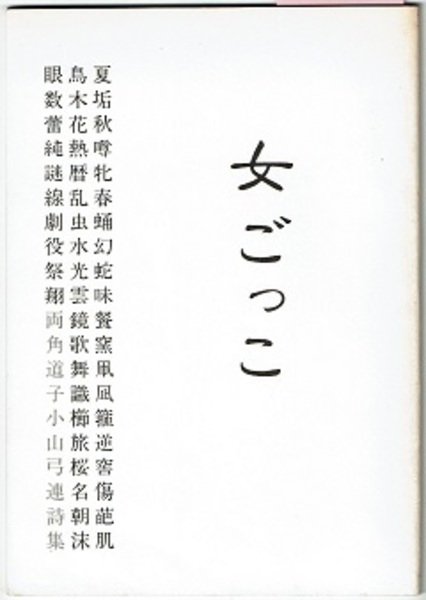 女ごっこ
夏垢秋噂牝春蛹幻蛇味餐窯凧凪籠逆窖傷葩肌
鳥木花熱暦乱虫水光雲鏡歌舞識櫛旅桜名朝沫
眼数蕾純謎線劇役祭翔両角道子小山弓連詩集